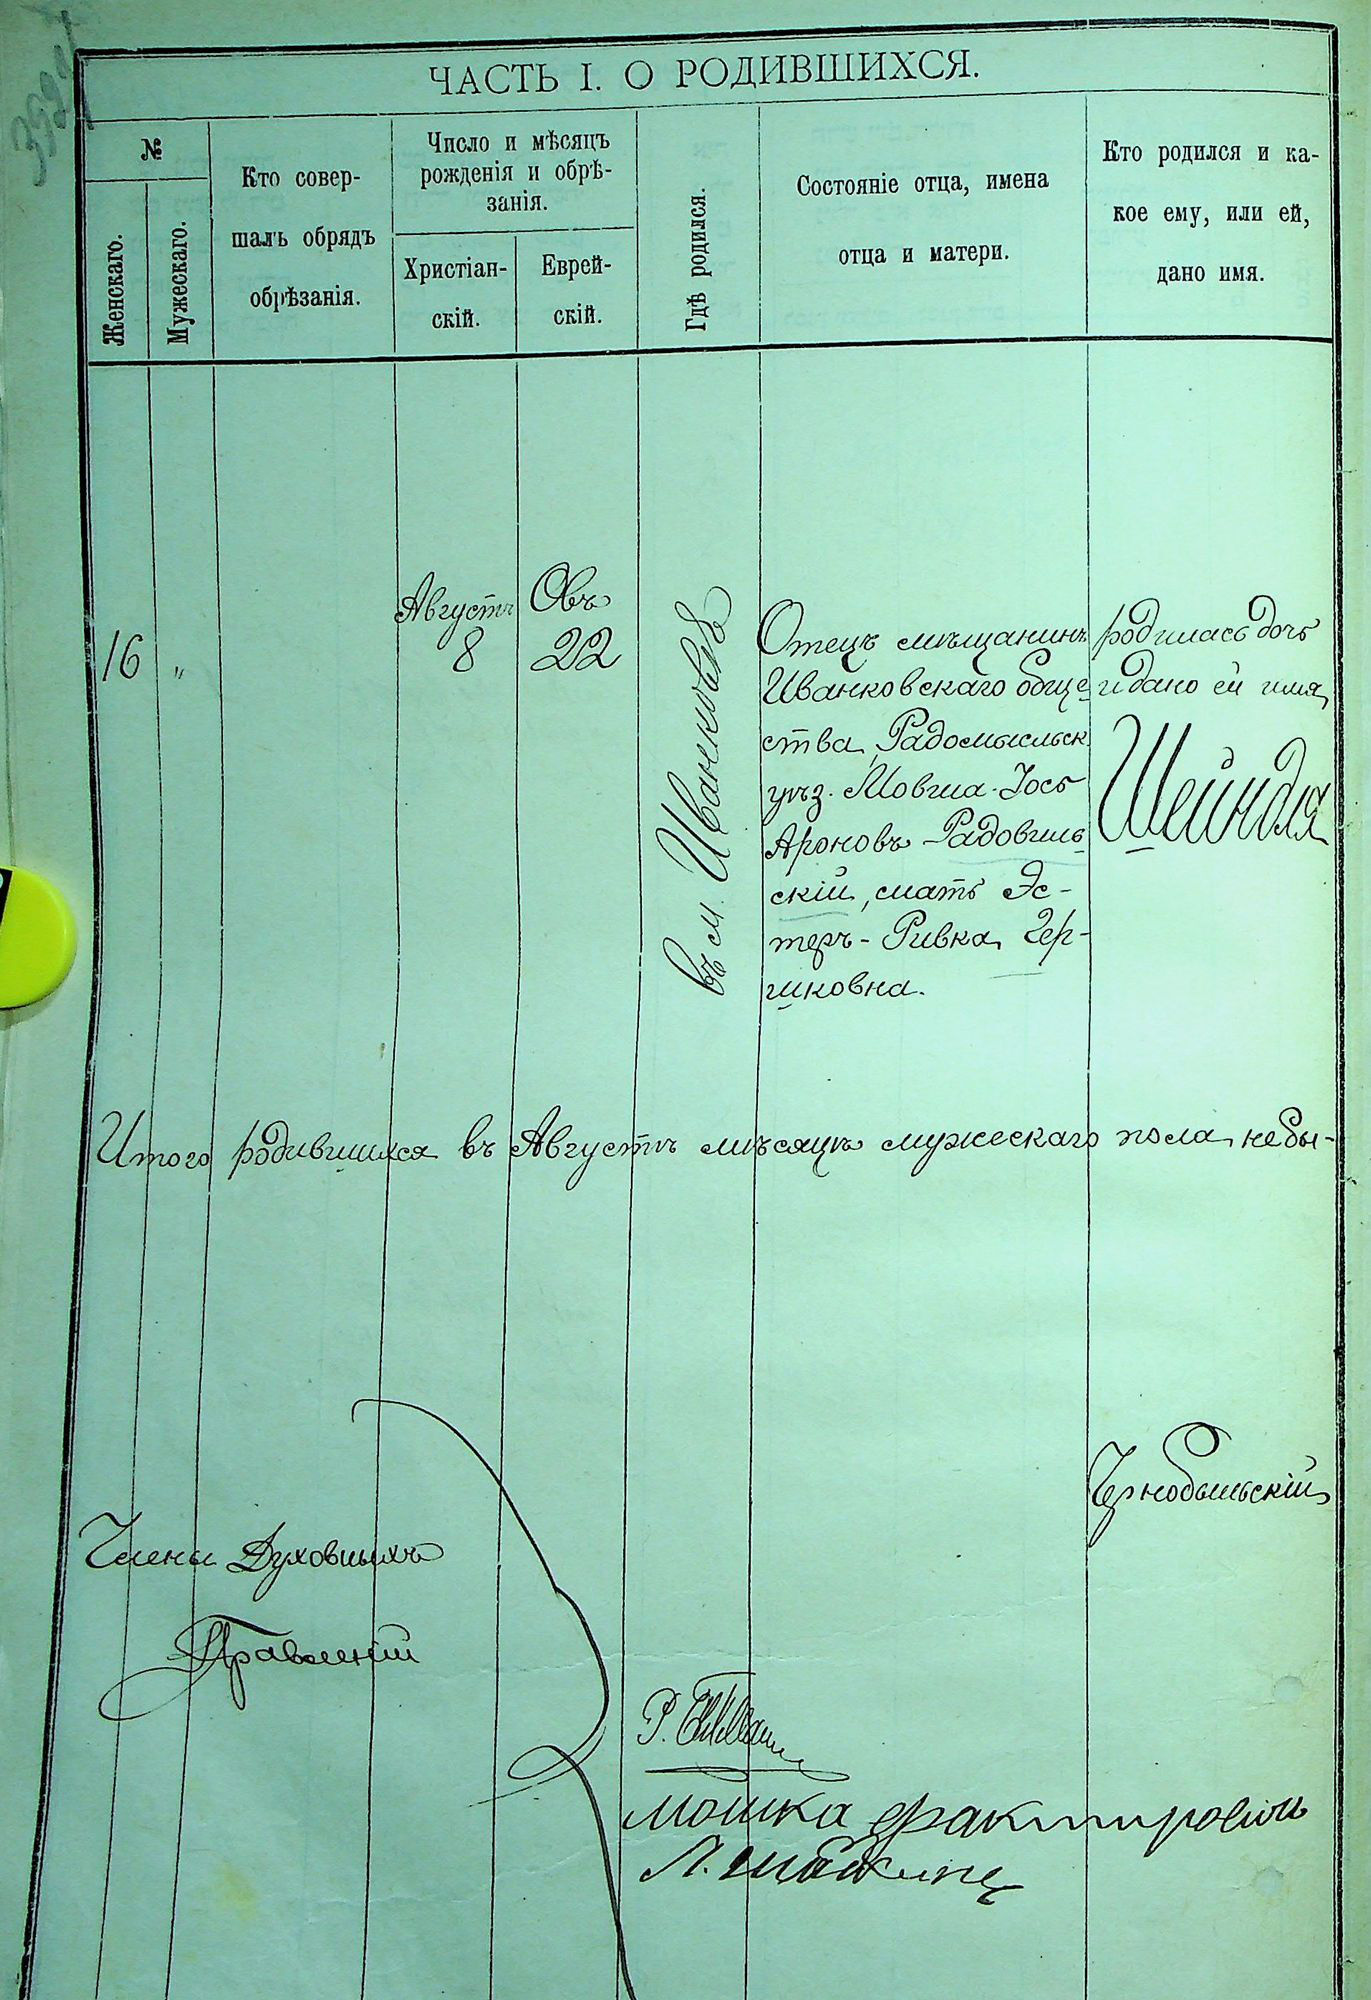 ЧАСТЬ I. О РОДИВШИХСЯ.
№
Женскаго.
Мужескаго.
Кто совер-
шалъ обрядъ
обрѣзанія.
Число и мѣсяцъ
рожденія и обрѣ-
занія.
Христіан-
скій.
Еврей-
скій.
Гдѣ родился.
Состояніе отца, имена
отца и матери.
Кто родился и ка-
кое ему, или ей,
дано имя.
16
"
Августъ
8
Овъ
22
въ м. Иванковѣ
Отецъ мѣщанинъ
Иванковскаго обще-
ства, Радомысльск.
уѣз. Мовша-Іось
Ароновъ Радовиль-
скій, мать Эс-
теръ-Ривка Гер-
шковна.
родилась дочь
и дано ей имя
Шейндля
Итого родившихся въ Августѣ мѣсяцѣ мужескаго пола небы-
Чернобыльскій
Члены Духовныхъ
Правленій
Р.
мошка фактирович
Л.